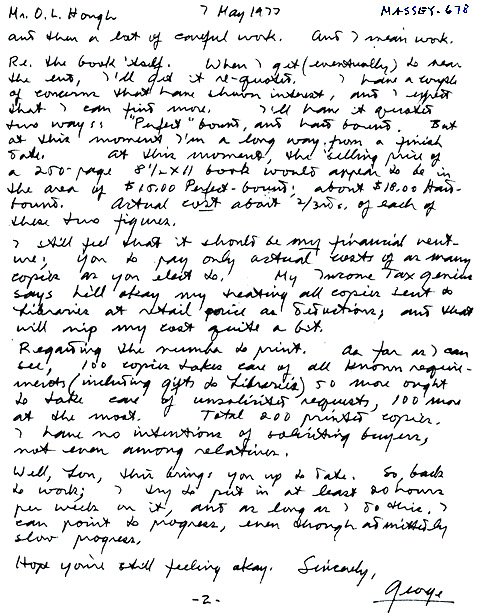 Mr. O. L. Hough 7 May 1977 MASSEY-678
and then a lot of careful work. And I mean work.
Re. the book itself. When I get (eventually) to near
the end, I'll get it re-quoted. I have a couple
of concerns that have shown interest, and I expect
that I can find more. I'll have it quoted
two ways: "Perfect" bound, and hard bound. But
at this moment I'm a long way from a finish
date. At this moment, the selling price of
a 250-page 8½ x 11 book would appear to be in
the area of $15.00 Perfect-bound; about $18.00 Hard-
bound. Actual cost about 2/3rds. of each of
these two figures.
I still feel that it should be my financial vent-
ure; you to pay only actual costs of as many
copies as you elect to. My Income Tax genius
says he'll okay my treating all copies sent to
Libraries at retail price as deductions; and that
will nip my cost quite a bit.
Regarding the number to print. As far as I can
see, 100 copies takes care of all known require-
ments (including gifts to Libraries) 50 more ought
to take care of unsolicited requests, 100 more
at the most. Total 200 printed copies.
I have no intentions of soliciting buyers,
not even among relatives.
Well, Lon, this brings you up to date. So, back
to work; I try to put in at least 20 hours
per week on it, and as long as I do this, I
can point to progress, even though admittedly
slow progress.
Hope you're still feeling okay. Sincerely,
George
-2-